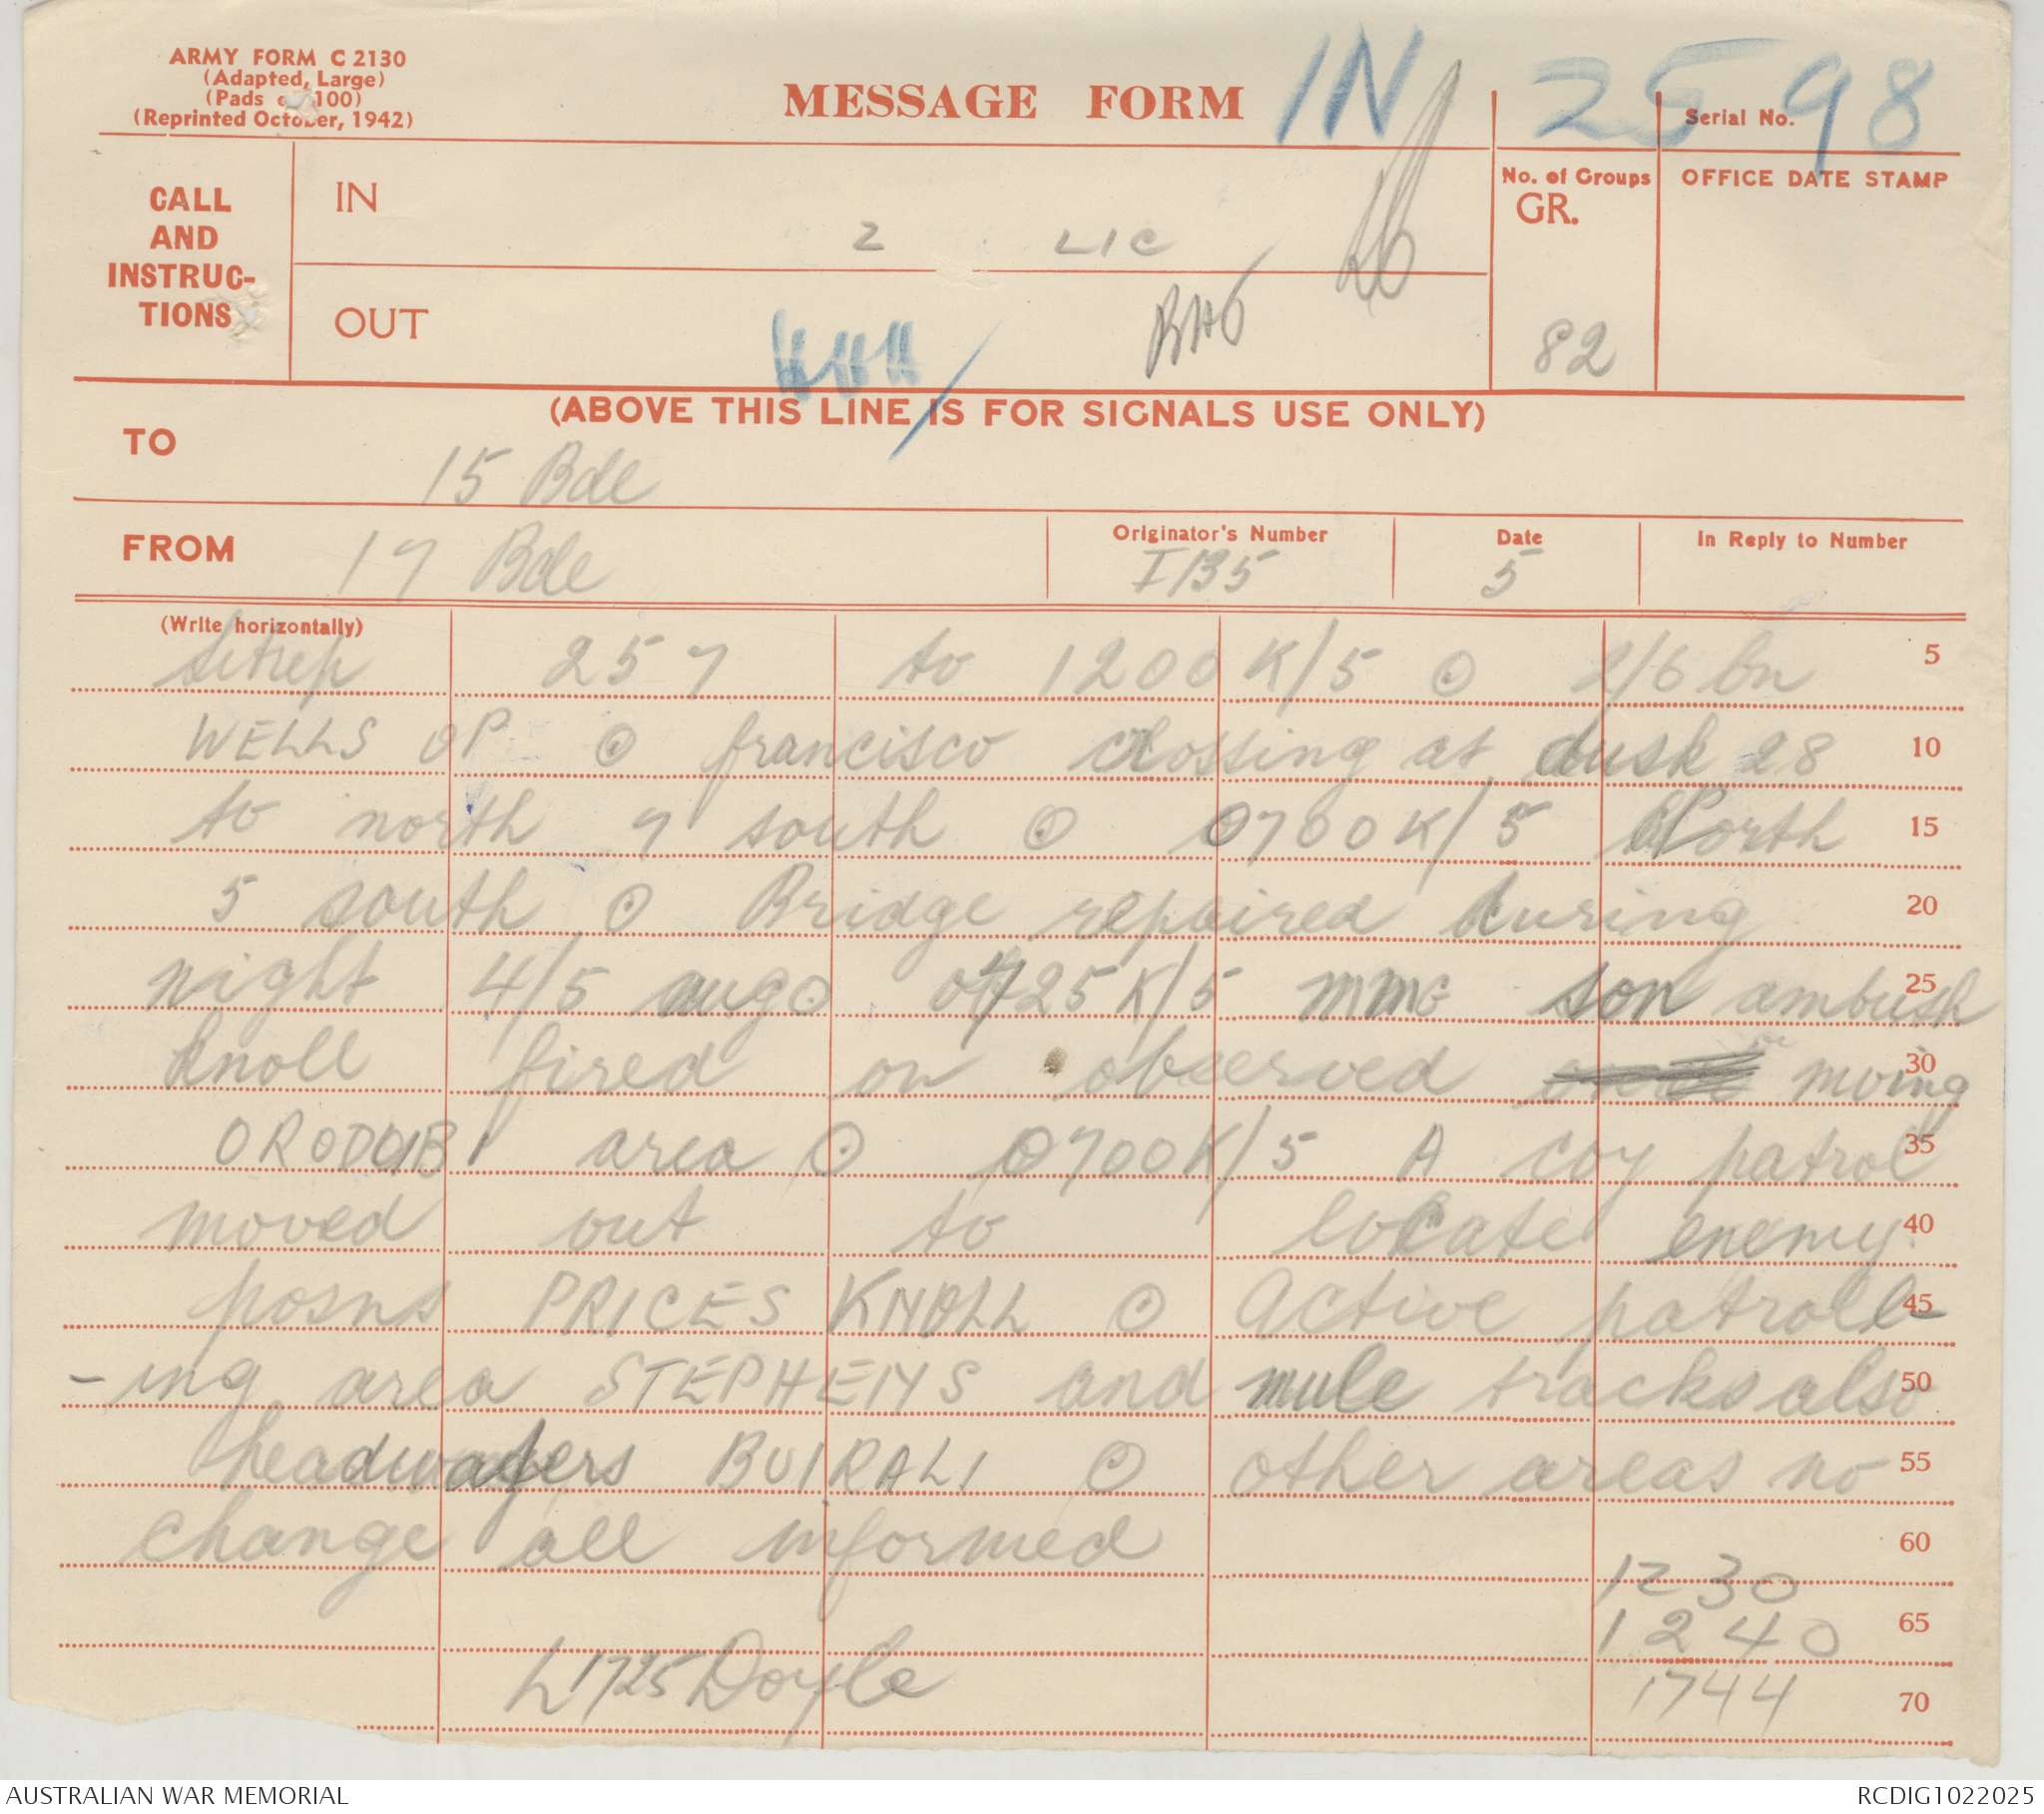 ARMY FORM C 2130
(Adapted, Large)
(Pads of 100)
(Reprinted October, 1942)
MESSAGE FORM
IN 2598
Serial No.
CALL AND INSTRUC-TIONS
IN
2 LIC
No. of Groups
GR.
82
OFFICE DATE STAMP
OUT
(ABOVE THIS LINE IS FOR SIGNALS USE ONLY)
TO
15 Bde
FROM
17 Bde
Originator's Number
IB5
Date
5
In Reply to Number
(Write horizontally)
Sitrep 257 to 1200K/5 ⊙ 2/6 Bn 5
WELLS OP ⊙ francisco crossing at dusk 28 10
to north 7 south ⊙ 0700K/5 North 15
5 south ⊙ Bridge repaired during 20
night 4/5 aug ⊙ 0725K/5 MMG son ambush 25
knoll fired on observed moving 30
ORODUBI area ⊙ 0700K/5 A coy patrol 35
moved out to locate enemy 40
posns PRICES KNOLL ⊙ Active patroll- 45
-ing area STEPHENS and mule tracks also 50
headwaters BUIRALI ⊙ other areas no 55
change all informed 60
1230
1240 65
L1725 Doyle
1744 70
AUSTRALIAN WAR MEMORIAL
RCDIG1022025